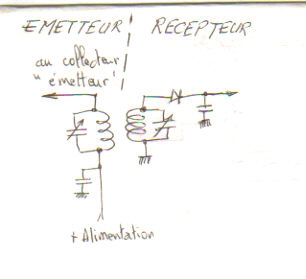 EMETTEUR RECEPTEUR
au collecteur
"émetteur"
+ Alimentation